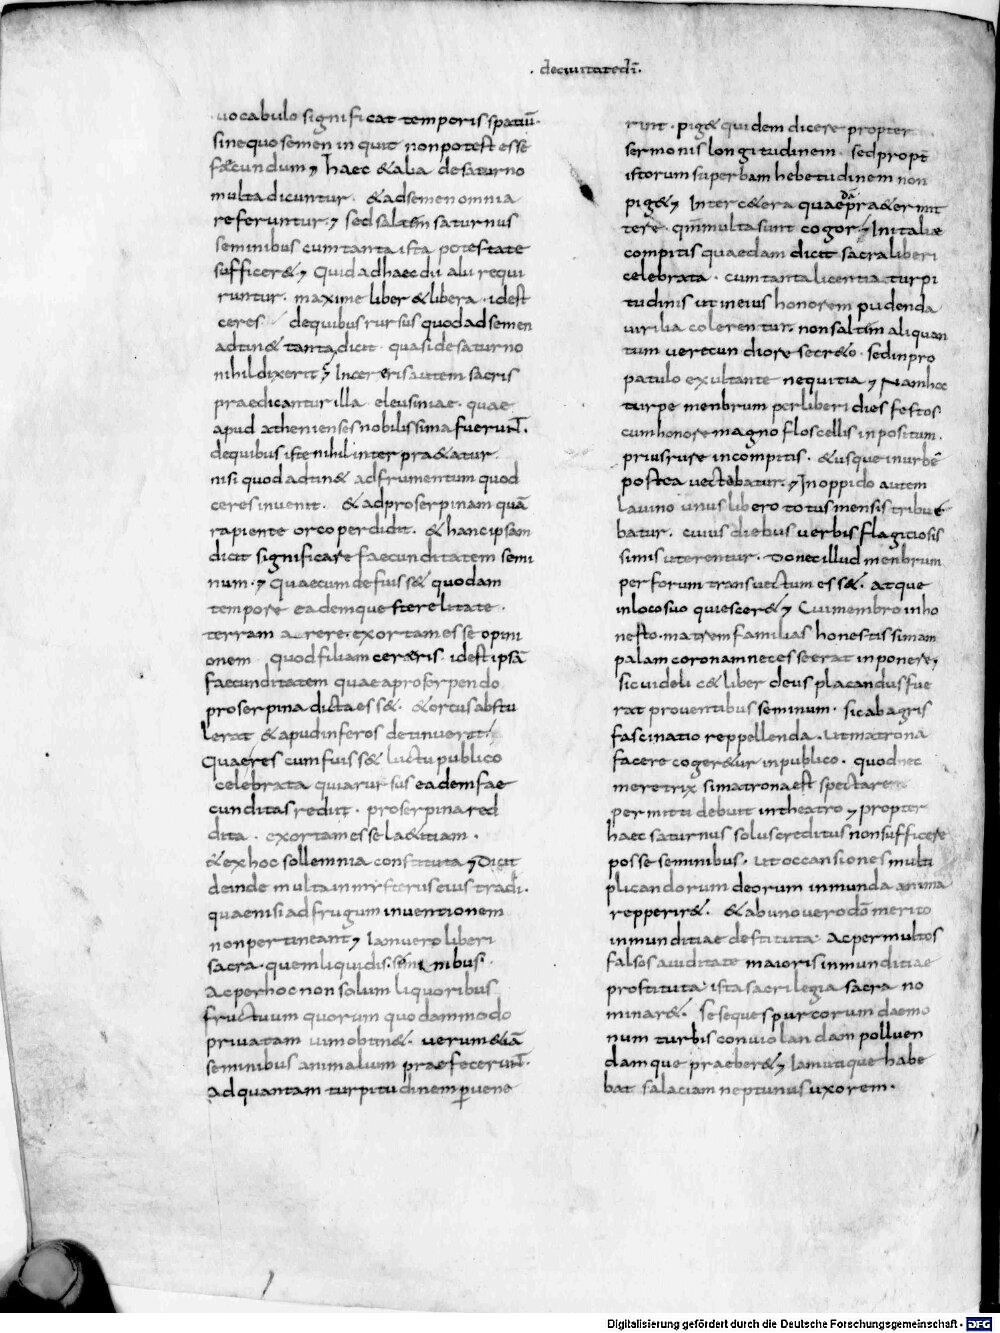 · deciuitatedī ·
uocabulo significat temporis spatiū·
sine quo semen in quit non potest esse
faecundum; haec & alia desaturno
multa dicuntur. & ad semen omnia
referuntur; sed saltim saturnus
seminibus cum tanta ista potestate
suffficer&; Quid ad haec dii alii requi
runtur. maxime liber & libera · idest
ceres. dequibus rursus quod ad semen
adtin& tanta dicit · quasi de saturno
nihil dixerit; In cereris autem sacris
praedicantur illa eleusiniae · quae
apud athenienses nobilissima fuerunt.
dequibus iste nihil interpraeatur.
nisi quod adtin& ad frumentum quod
ceres inuenit. & ad proserpinam quā
rapiente orco perdidit. & hanc ipsam
dicit significare faecunditatem semi
num·; quae cum defuiss& quodam
tempore eademque sterelitate.
terram a rere· exortam esse opini
onem quod filiam cereris · idest ipsā
faecunditatem quae aproserpendo
proserpina dicta ess&. & orcus abstu
lerat & apud inferos detinuerit;
Quae res cum fuiss& luctu publico
celebrata quia rursus eadem fae
cunditas rediit. proserpina red
dita. exortam esse laetitiam.
& ex hoc sollemnia constituta; Dicit
deinde multa in mysteriis eius tradi.
quae nisi ad frugum inuentionem
non pertineant; Iam uero liberi
sacra · quem liquidis seminibus·
Ac per hoc non solum liquoribus
fructuum quorum quodammodo
priuatam uim obtin&. uerum &iā
seminibus animalium praefecerunt.
Ad quantam turpitudinem puene
runt · pig& quidem dicere propter
sermonis longitudinem · sed propt̄
istorum superbam hebetudinem non
pig&; Inter c&era quae p̄ra&ermit
dā
tere · qm̄ multa sunt cogor; In italiae
compitis quaedam dicit sacra liberi
celebrata · cum tanta licentia turpi
tudinis ut in eius honorem pudenda
uirilia colerentur. non saltim aliquan
tum uerecundiore secr&o · sed in pro
patulo exultante nequitia; Nam hoc
turpe menbrum per liberi dies festos
cum honore magno floscellis in positum.
prius rure in compitis · & usque in urbē
postea uectabatur; In oppido autem
lauino unus libero totus mensis tribue
batur. cuius diebus uerbis flagitiosis
simis uterentur. Donec illud menbrum
per forum transuectum ess&. atque
in loco suo quiescer&; Cui membro inho
nesto · matrem familias honestissimam
palam coronam necesse erat inponere;
sic uidelic& liber deus placandus fue
rat prouentibus seminum · sic ab agris
fascinatio reppellenda · ut matrona
facere coger&ur in publico · quod nec
meretrix si matrona est spectare
permitti debuit in theatro; propter
haec saturnus solus creditus non sufficere
posse seminibus · ut occansiones multi
plicandorum deorum inmunda anima
repperir&. & ab uno uero dō merito
inmunditiae destituta. Ac per multos
falsos auiditate maioris inmunditiae
prostituta · ista sacrilegia sacra no
minar&. Seseque spurcorum daemo
num turbis conuiolandam polluen
damque praeber&; Iam utique habe
bat salaciam neptunus uxorem.
Digitalisierung gefördert durch die Deutsche Forschungsgemeinschaft - DFG